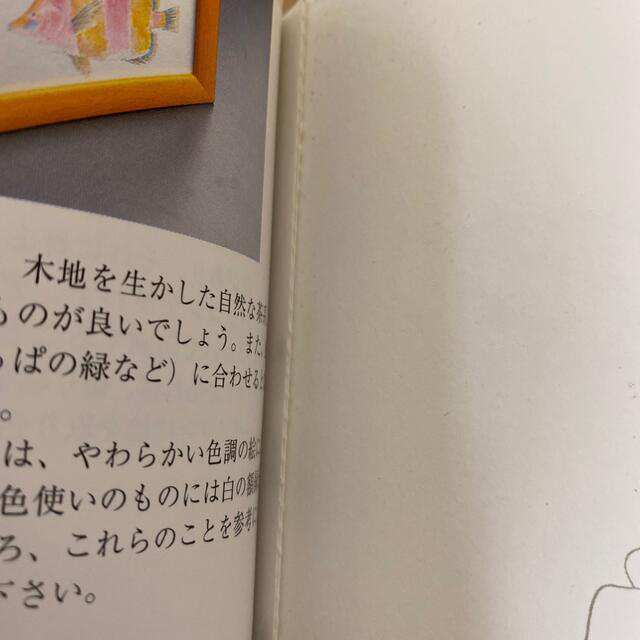 木地を生かした自然な茶
ものが良いでしょう。また、
っぱの緑など）に合わせると
。
は、やわらかい色調の絵に
色使いのものには白の額
ろ、これらのことを参考に
下さい。